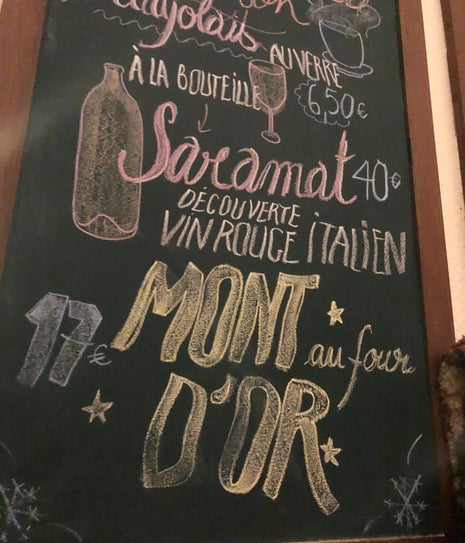 AU VERRE
À LA BOUTEILLE
6,50€
Saramat 40€
DÉCOUVERTE
VIN ROUGE ITALIEN
MONT
17€ au four
D'OR